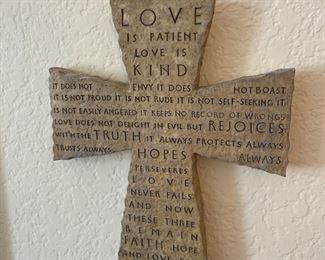 LOVE
IS PATIENT
LOVE IS
KIND
IT DOES NOT ENVY IT DOES NOT BOAST
IT IS NOT PROUD IT IS NOT RUDE IT IS NOT SELF-SEEKING IT
IS NOT EASILY ANGERED IT KEEPS NO RECORD OF WRONGS
LOVE DOES NOT DELIGHT IN EVIL BUT REJOICES
WITH THE TRUTH IT ALWAYS PROTECTS ALWAYS
TRUSTS ALWAYS HOPES ALWAYS
PERSEVERES
LOVE
NEVER FAILS
AND NOW
THESE THREE
REMAIN
FAITH, HOPE
AND LOVE